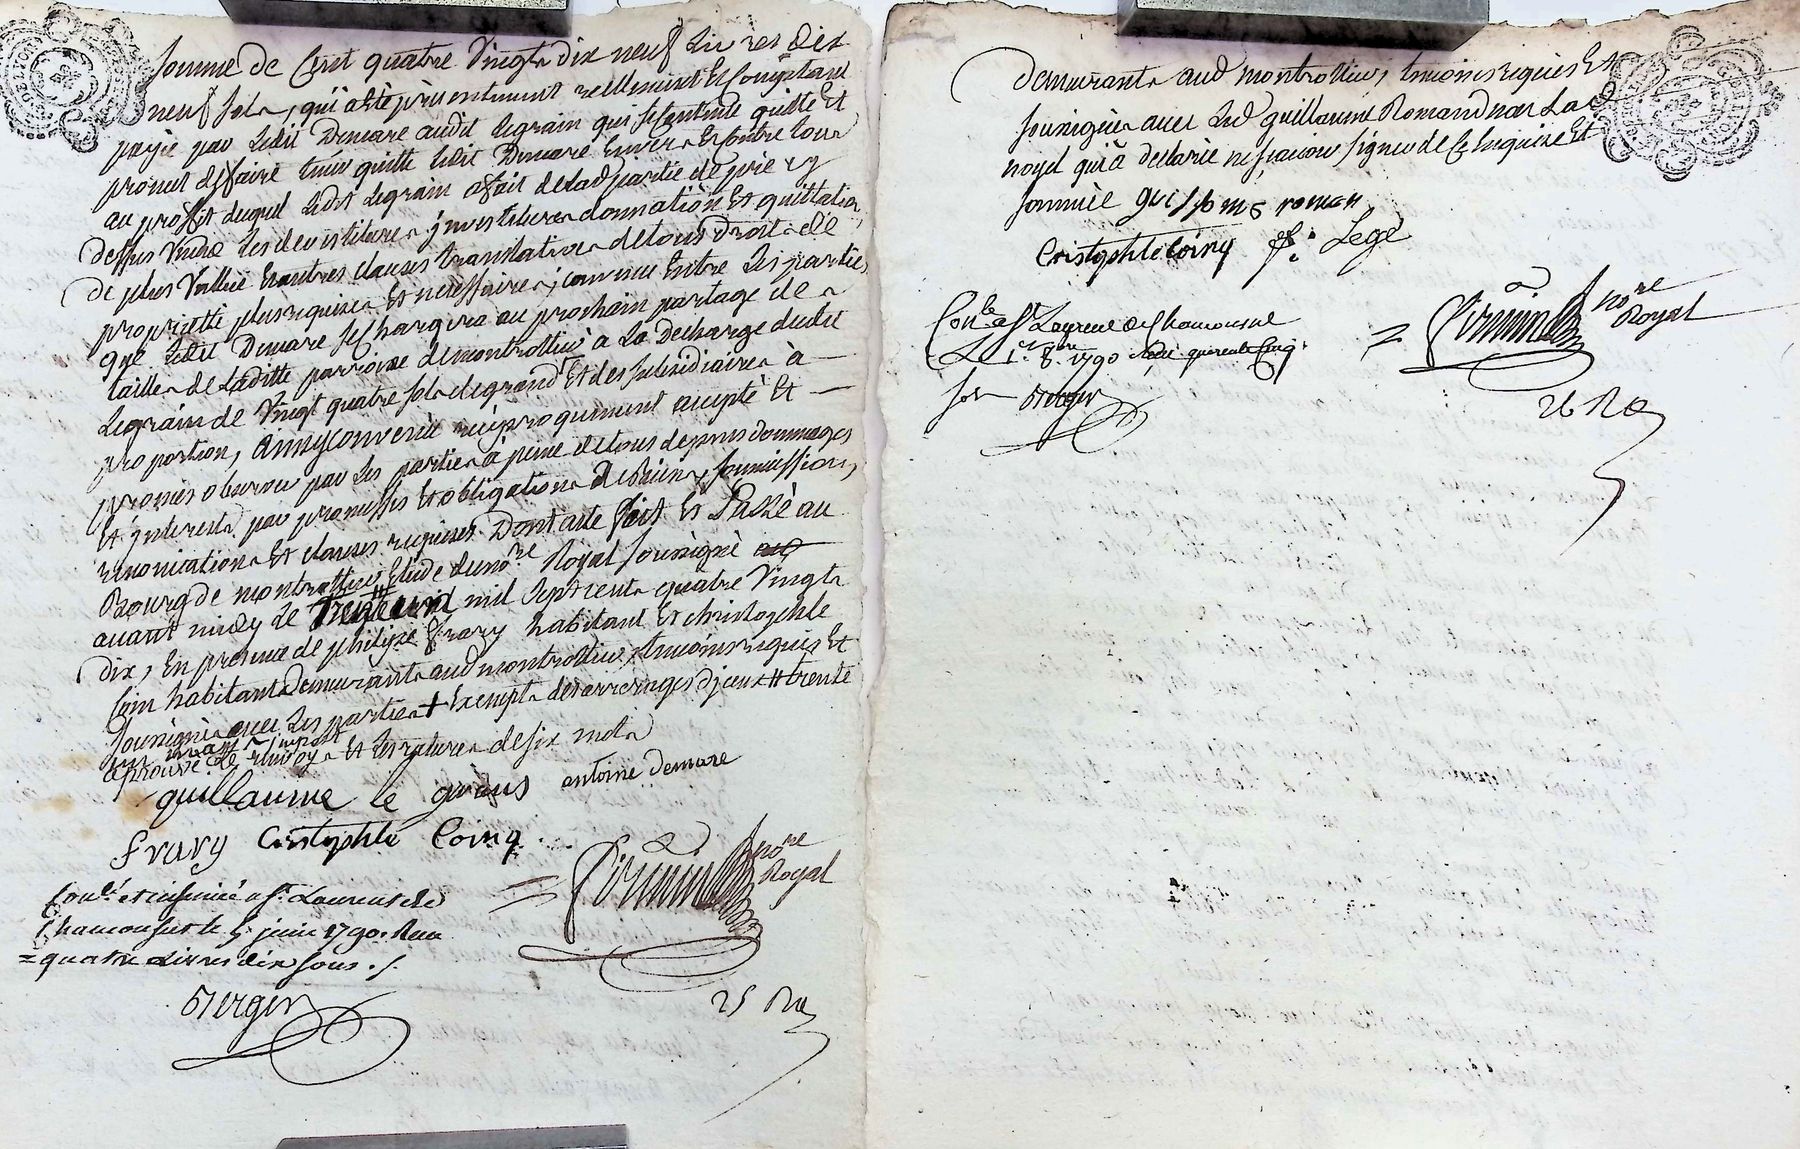 somme de Cent quatre Vingts dix neuf Livres dix
neuf sols, qui a été présentement réellement Et Comptant
payée par Ledit Demare audit Legrain qui se Contente quitte Et
promet de faire tenir quitte Ledit Demare Envers Et Contre tous
au proffit duquel Ledit Legrain a fait de Lad partie de pré cy
dessus Vendue Les devestitures investitures donnation Et quittation
de plus Vallue Et autres clauses translatives de tous droits de
propriette plus requises Et necessaires, convenu Entre Les parties
que Ledit Demare se Chargera au prochain partage de
tailles de Laditte parroisse de montrottier à La Decharge dudit
Legrain de Vingt quatre sols de grand Et des subsidiaires à
proportion, ainsy convenu reciproquement accepté Et
promis observer par Les parties à peine de tous depens dommages
Et interests par promesses Et obligations de Biens, soumissions,
renonciations Et clauses requises Dont acte fait Et Passé au
Bourg de montrottier Etude du no.re Royal soussigné
avant midy Le trente un mil sept cents quatre Vingts
Dix, En presence de philipe frary habitant Et christophle
Coin habitants demeurants aud montrottier, temoins requis Et
soussignés avec Les parties + Exempts des arrerages # trente
un may
aprouvé le renvoy Et Les ratures de six mots
guillaume le grains antoine demare
frary Cristophle Coinq
Con.lé et insinué a S.t Laurent de
Chamousset le 5 juin 1790. Recu
= quatre Livres dix sous ./.
Berger
= Pirmin no.re
Royal
25 Ro
demeurants aud montrottier, temoins requis Et
soussignés avec Led guillaume Romand non Lad
noyel qui à declarée ne scavoir signer de Ce Enquise Et
sommée guillome roman
Cristophle Coinq f. Lege
Con.lé a S.t Laurent de Chamousset
Le 1.er 8.bre 1790 Recu quarente Cinq
sols Berger
= Pirmin no.re
Royal
26 Ro